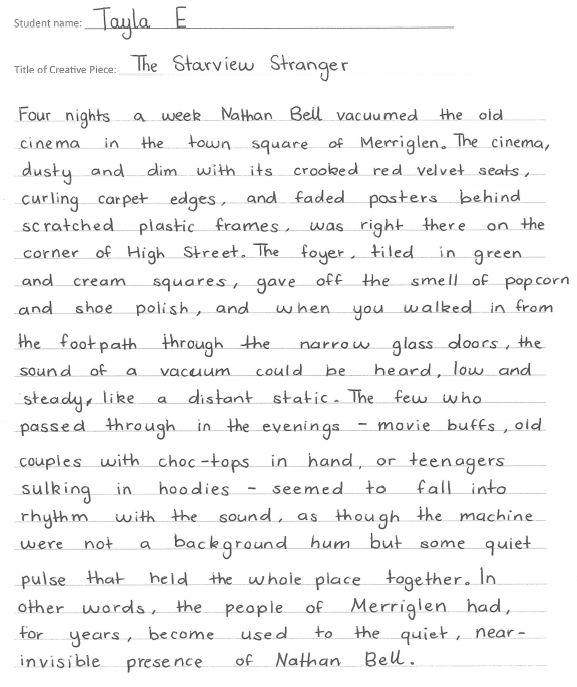 Student name: Tayla E
Title of Creative Piece: The Starview Stranger
Four nights a week Nathan Bell vacuumed the old
cinema in the town square of Merriglen. The cinema,
dusty and dim with its crooked red velvet seats,
curling carpet edges, and faded posters behind
scratched plastic frames, was right there on the
corner of High Street. The foyer, tiled in green
and cream squares, gave off the smell of popcorn
and shoe polish, and when you walked in from
the footpath through the narrow glass doors, the
sound of a vacuum could be heard, low and
steady, like a distant static. The few who
passed through in the evenings - movie buffs, old
couples with choc-tops in hand, or teenagers
sulking in hoodies - seemed to fall into
rhythm with the sound, as though the machine
were not a background hum but some quiet
pulse that held the whole place together. In
other words, the people of Merriglen had,
for years, become used to the quiet, near-
invisible presence of Nathan Bell.